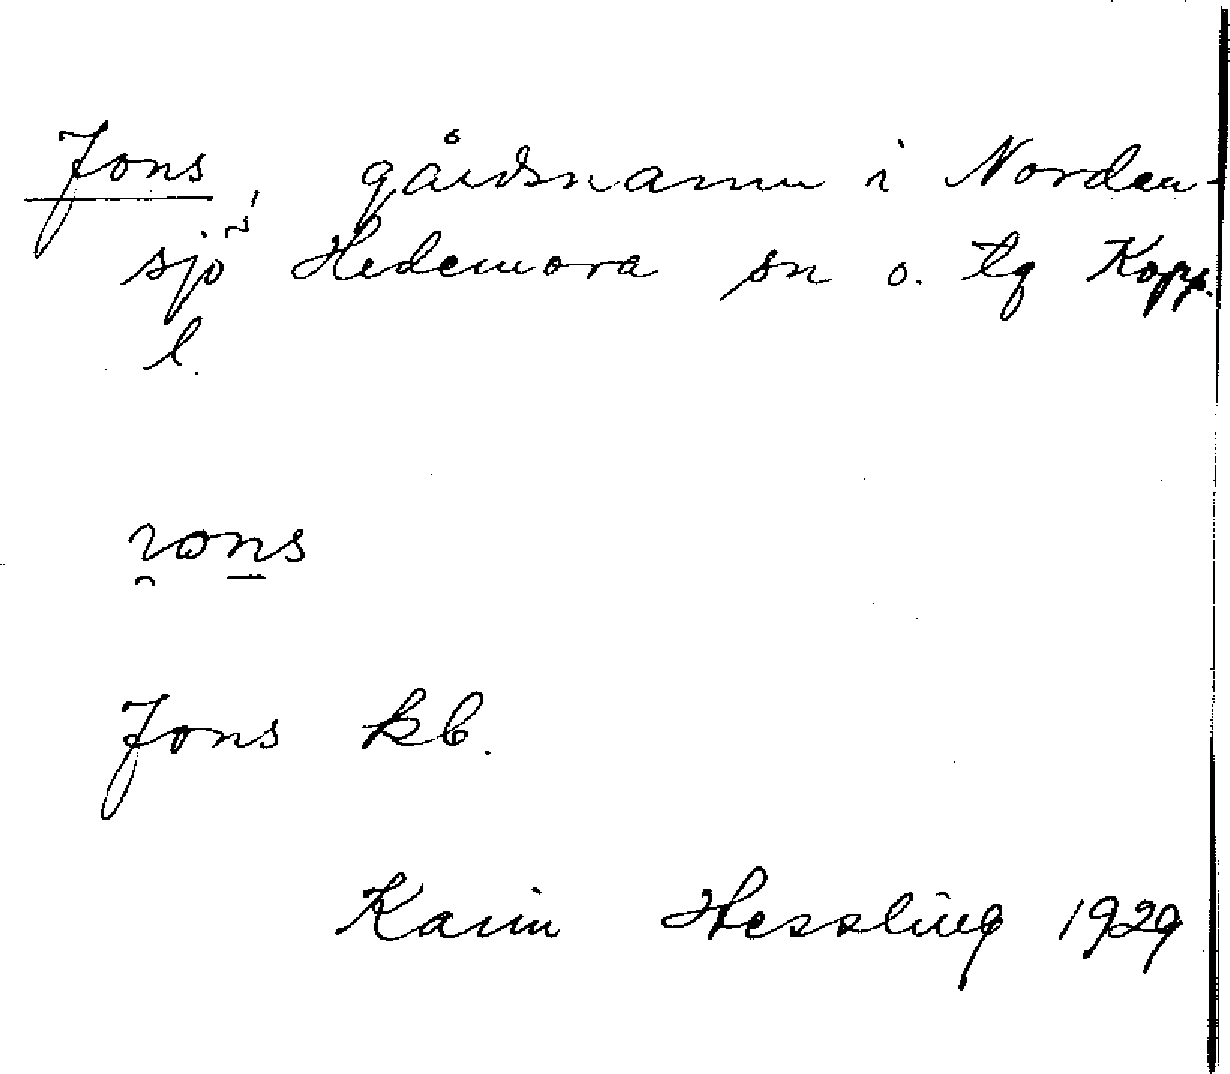 Jons, gårdsnamn i Norden-
sjö Hedemora sn o. tg Kopp.
l.
Jons kb.
Karin Hessling 1929